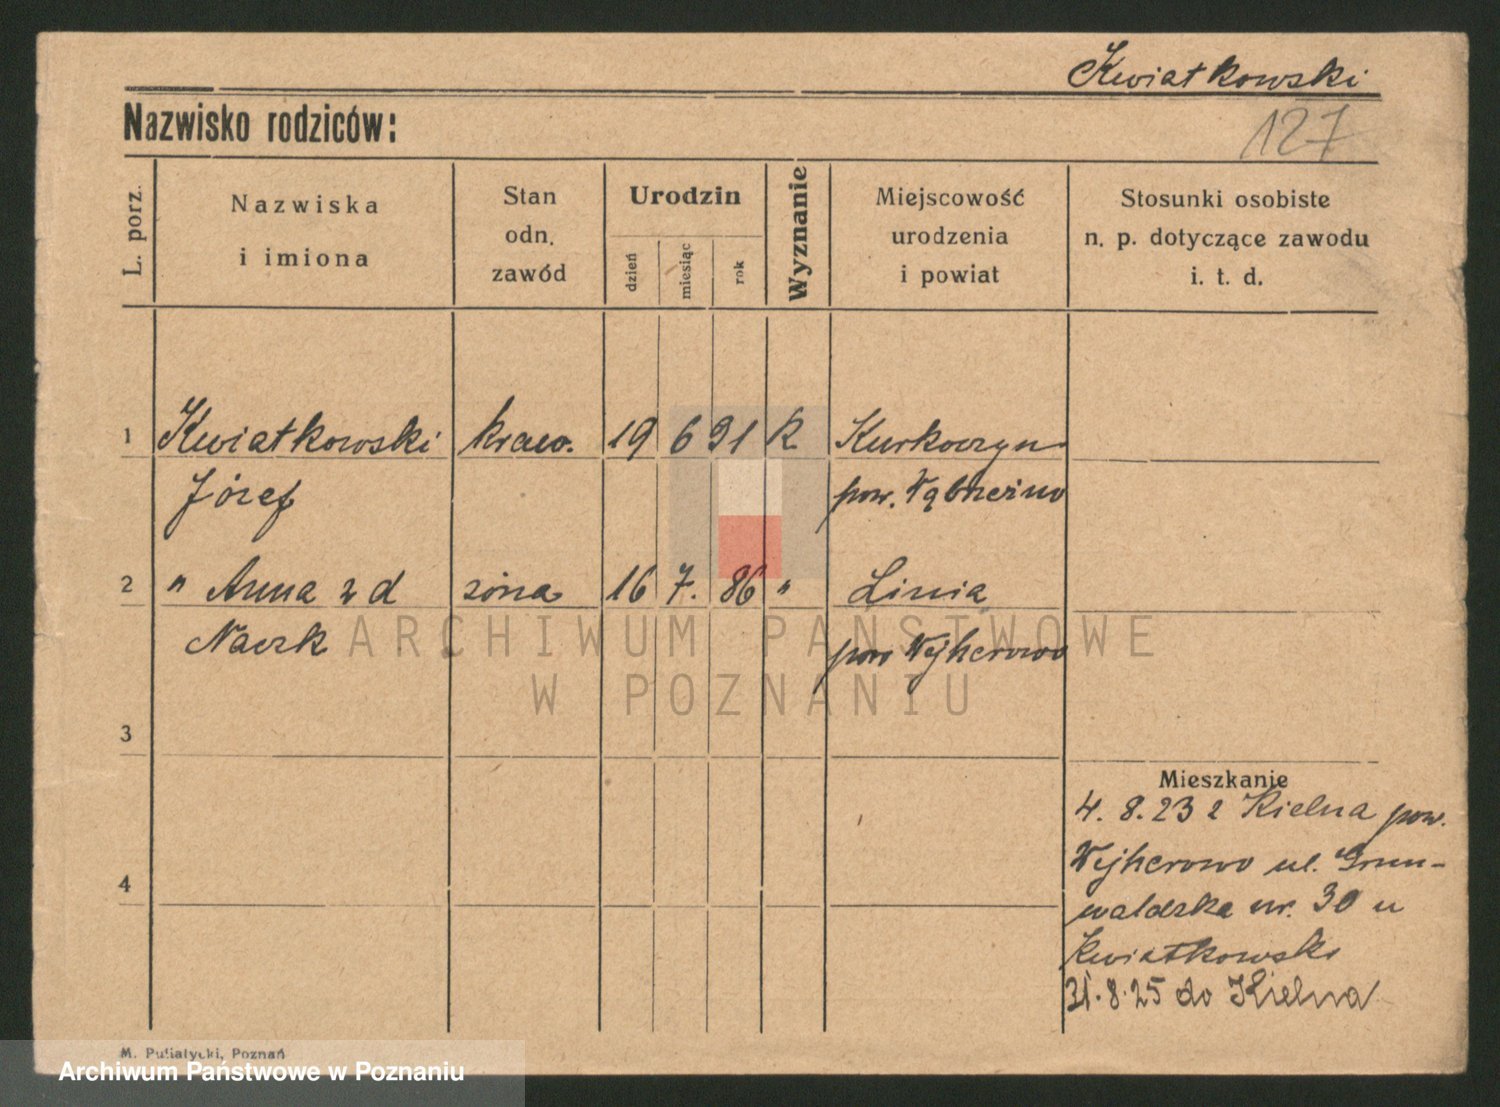 Kwiatkowski
Nazwisko rodziców:
127
L. porz.
Nazwiska
i imiona
Stan
odn.
zawód
Urodzin
dzień
miesiąc
rok
Wyznanie
Miejscowość
urodzenia
i powiat
Stosunki osobiste
n. p. dotyczące zawodu
i. t. d.
1 Kwiatkowski kraw. 19 6 91 k Kurkoczyn
Józef pow. Wąbrzeźno
2 " Anna z d żona 16 7. 86 " Linia
Naczk pow Wejherowo
ARCHIWUM PAŃSTWOWE
W POZNANIU
3
Mieszkanie
4. 8. 23 z Kielna pow.
Wejherowo ul. Grun-
4
waldzka nr. 30 u
Kwiatkowski
31. 8. 25 do Kielna
M. Putiatycki, Poznań
Archiwum Państwowe w Poznaniu